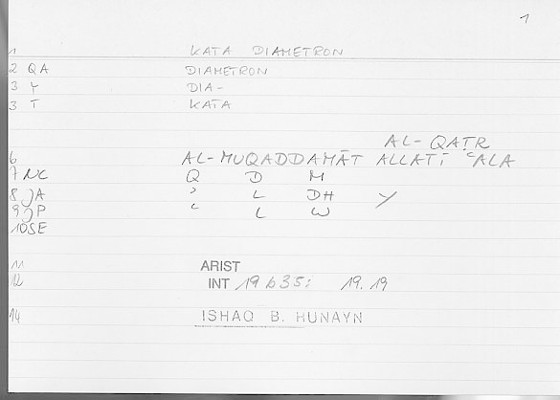 1
1 KATA DIAMETRON
2 QA DIAMETRON
3 Y DIA-
3 T KATA
AL-QAṬR
6 AL-MUQADDAMĀT ALLATĪ ʿALA
7 NC Q D M
8 JA ʾ L DH Y
9 JP ʿ L W
10 SE
11 ARIST
12 INT 19 b35; 19.19
14 ISHAQ B. HUNAYN